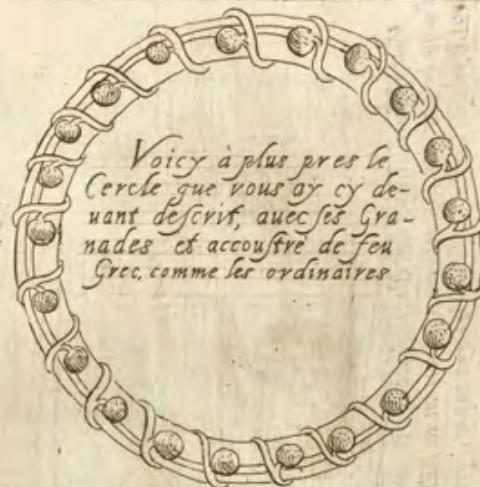 Voicy à plus pres le
Cercle que vous ay cy de-
uant deſcrit, auec ſes Gra-
nades et accouſtre de feu
Grec, comme les ordinaires